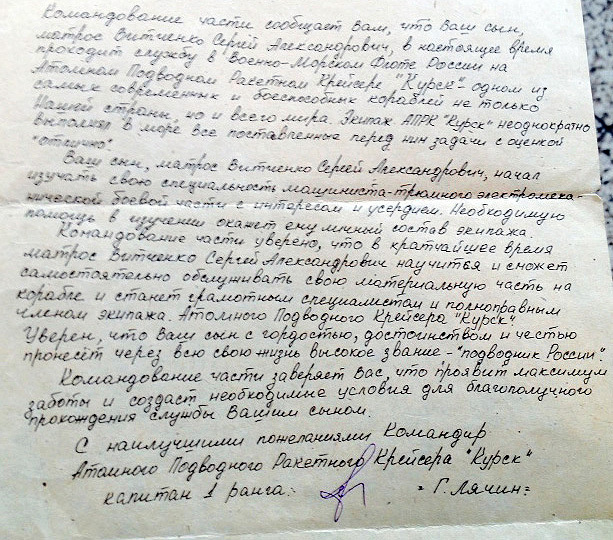 Командование части сообщает Вам, что Ваш сын,
матрос Витченко Сергей Александрович, в настоящее время
проходит службу в Военно-Морском Флоте России на
Атомном Подводном Ракетном Крейсере "Курск"- одном из
самых современных и боеспособных кораблей не только
Нашей страны, но и всего мира. Экипаж АПРК "Курск" неоднократно
выполнял в море все поставленные перед ним задачи с оценкой
"отлично".
Ваш сын, матрос Витченко Сергей Александрович, начал
изучать свою специальность машиниста-трюмного электромеха-
нической боевой части с интересом и усердием. Необходимую
помощь в изучении окажет ему личный состав экипажа.
Командование части уверено, что в кратчайшее время
матрос Витченко Сергей Александрович научится и сможет
самостоятельно обслуживать свою материальную часть на
корабле и станет грамотным специалистом и полноправным
членом экипажа. Атомного Подводного Крейсера "Курск".
Уверен, что Ваш сын с гордостью, достоинством и честью
пронесёт через всю свою жизнь высокое звание - "подводник России".
Командование части заверяет Вас, что проявит максимум
заботы и создаст необходимые условия для благополучного
прохождения службы Вашим сыном.
С наилучшими пожеланиями Командир
Атомного Подводного Ракетного Крейсера "Курск"
капитан 1 ранга: =Г. Лячин=